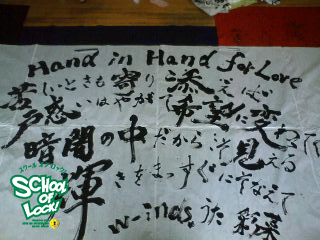 Hand in Hand for Love
苦しいときも寄り添えば
戸惑いはやがて希望に変って
暗闇の中だから見える
輝きをまっすぐに
w-inds. うた 彩来
スクール オブ ロック!
SCHOOL OF LOCK!